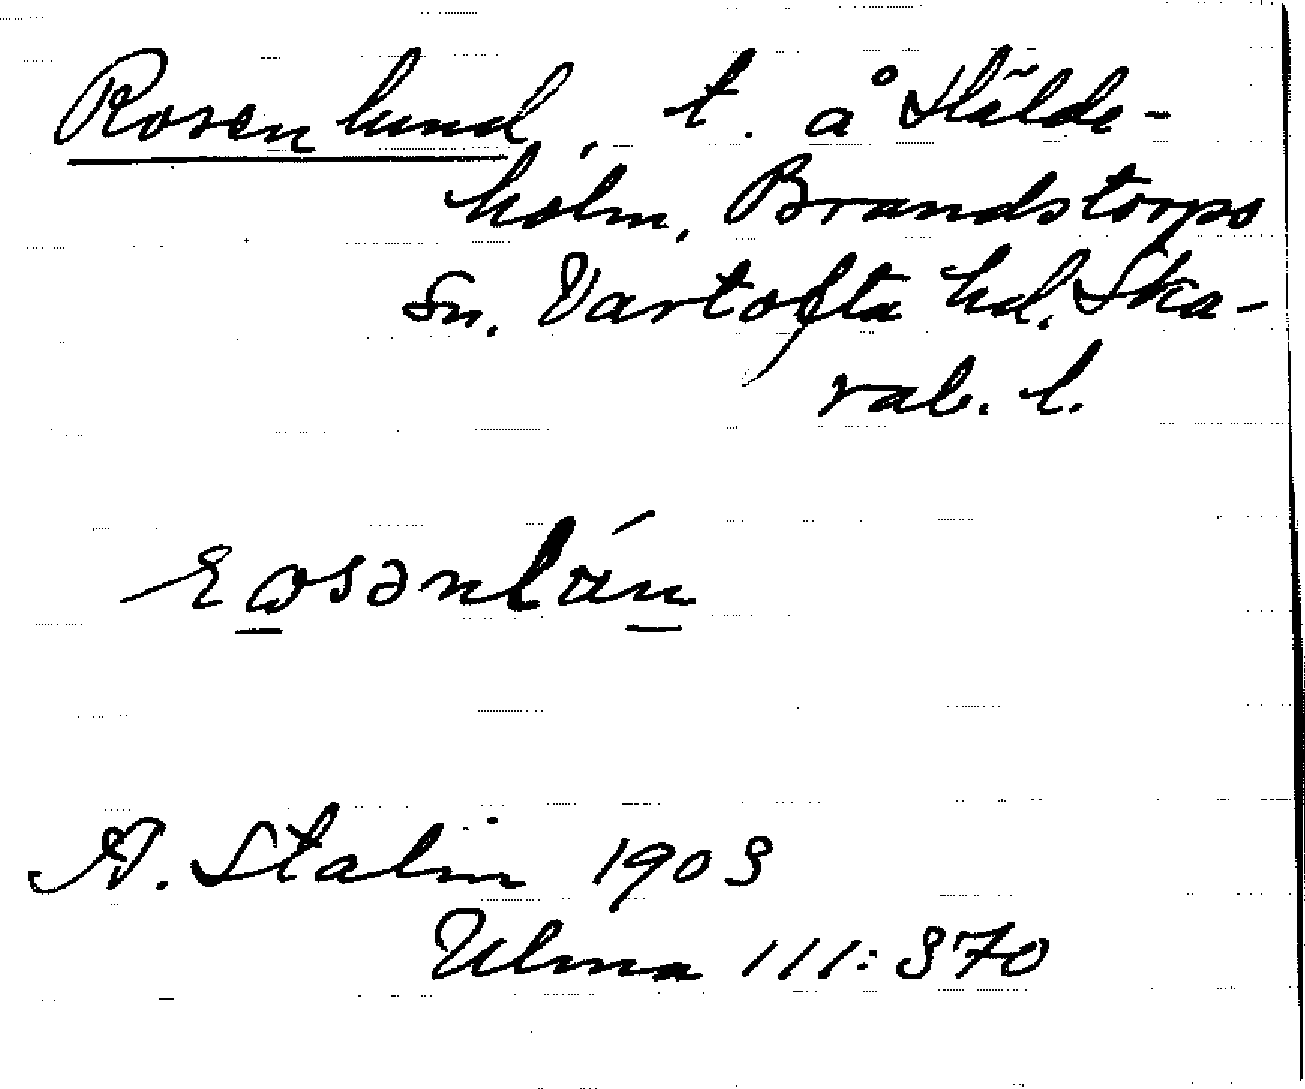 Rosenlund, t. å Hälde-
holm, Brandstorps
Sn. Vartofta hd. Ska-
rab. l.
A. Stalin 1903
Ulma 111:370